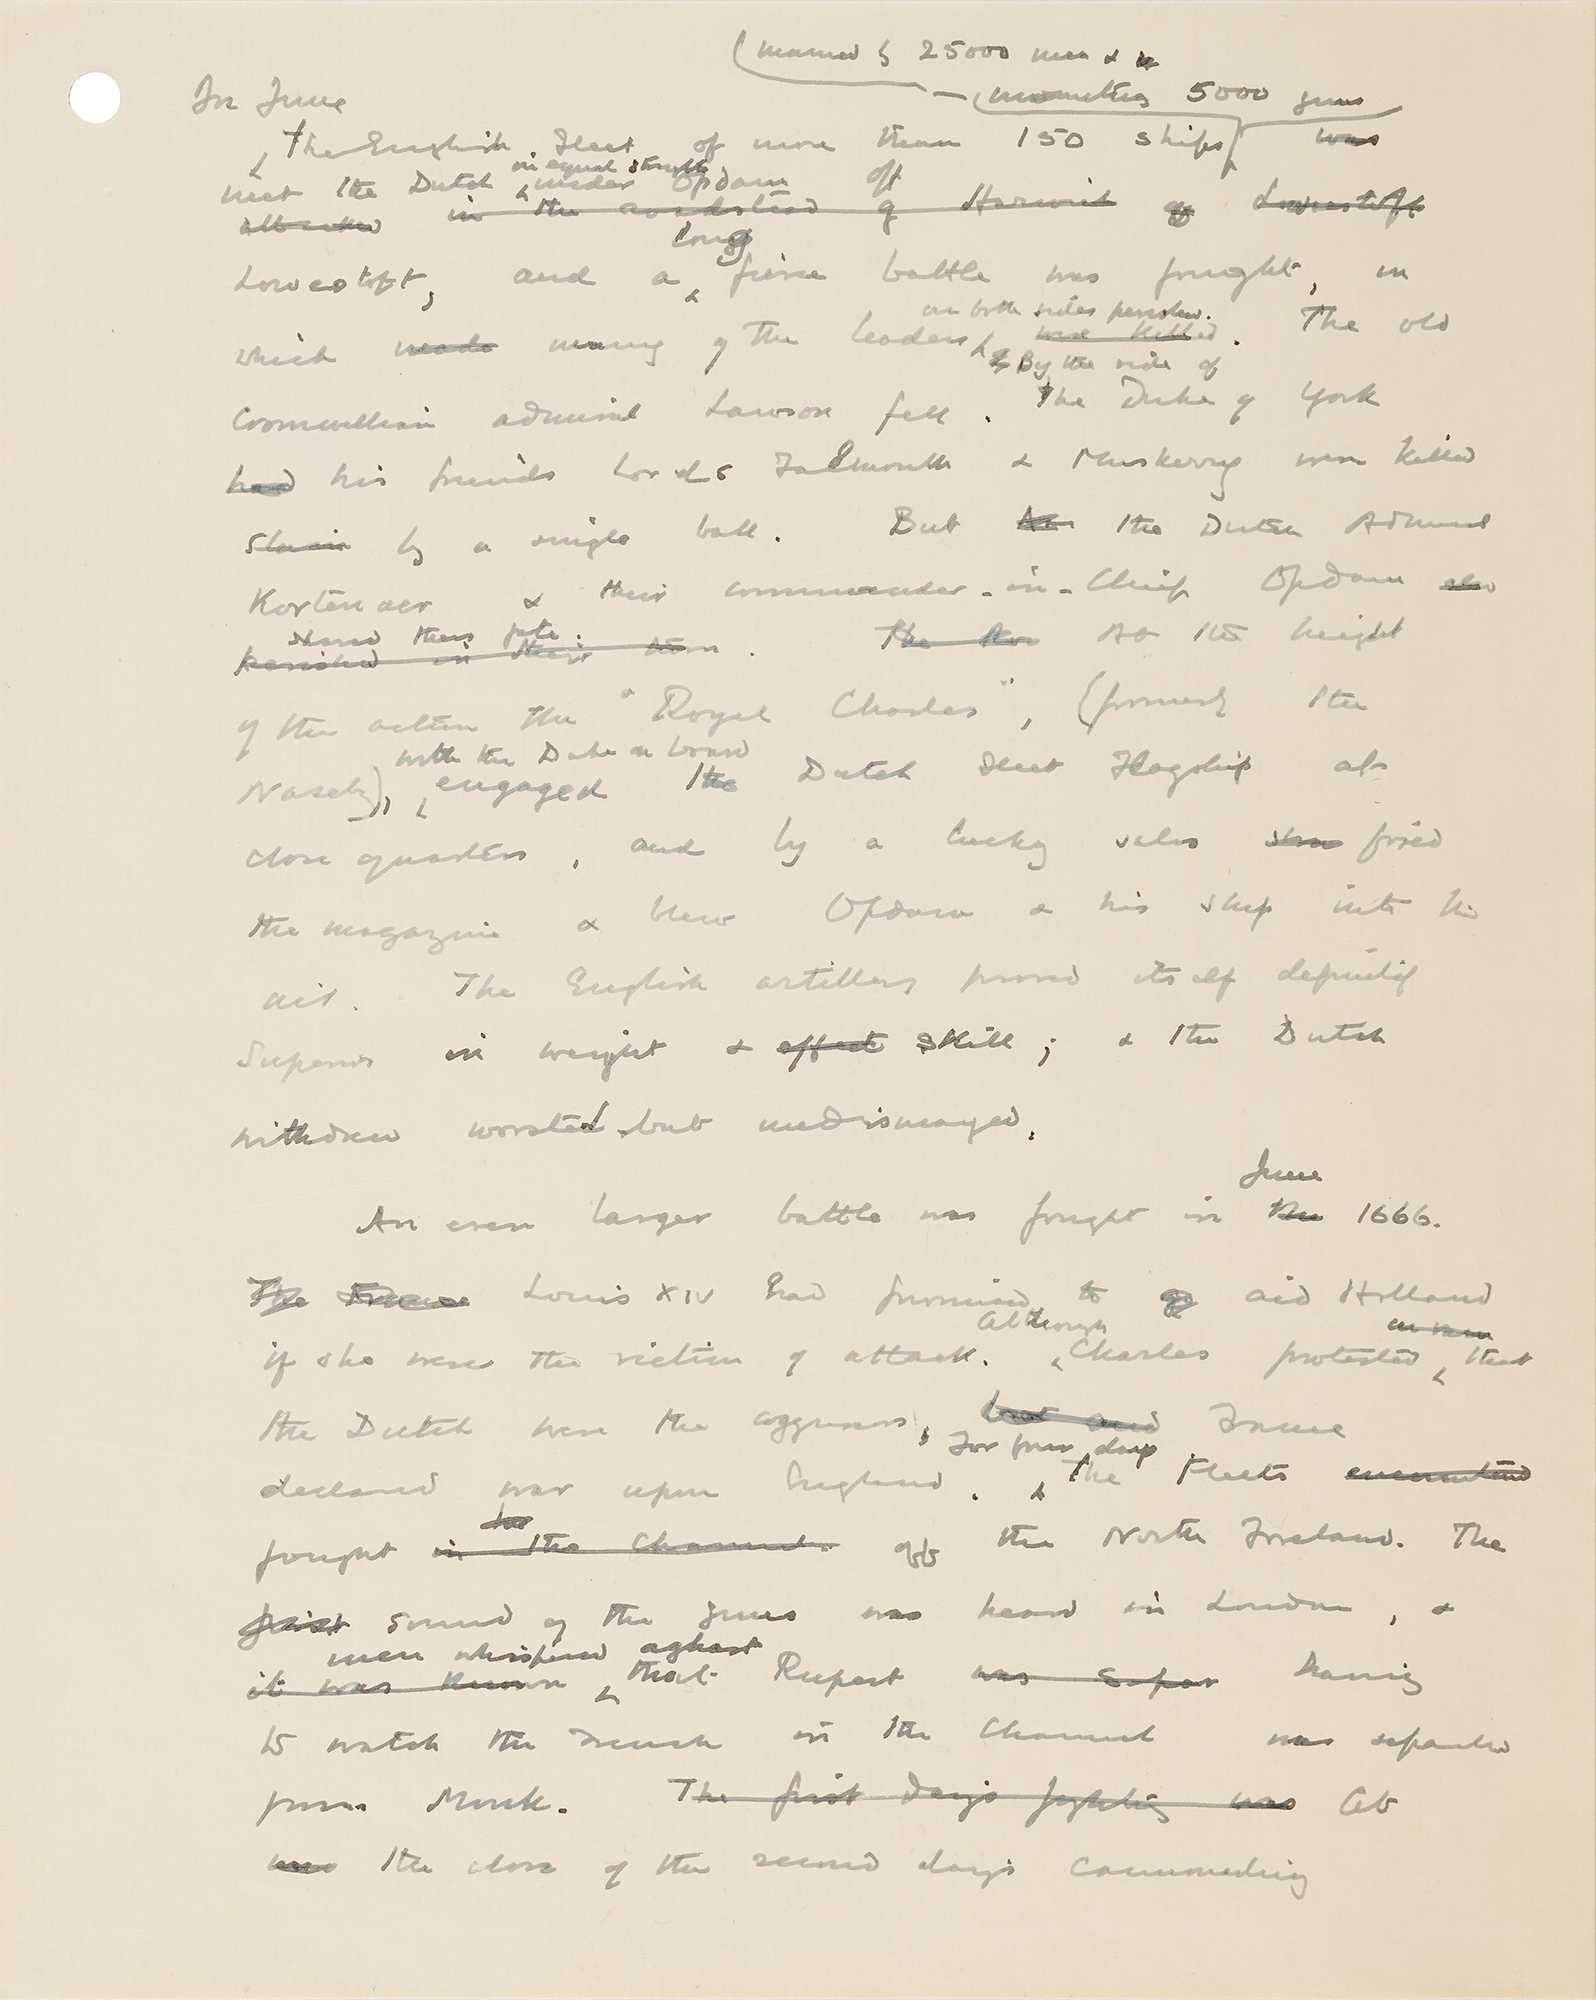 (manned by 25000 men &
mounting 5000 guns
In June
the English Fleet of more than 150 ships was
in equal strength
met the Dutch under Opdam off
attacked in the roadstead of Harwich off Lowestoft
long
Lowestoft, and a fierce battle was fought, in
on both sides perished.
which made many of the leaders were killed. The old
& By the side of
Cromwellian admiral Lawson fell. The Duke of York
had his friends Lords Falmouth & Muskerry were killed
slain by a single ball. But the Dutch Admiral
Kortenaer & their commander-in-Chief Opdam also
shared their fate.
perished in their turn. The Roy At the height
of the action the "Royal Charles", (formerly the
with the Duke on board
Naseby), engaged the Dutch Fleet Flagship at
close quarters, and by a lucky salvo fired
the magazine & blew Opdam & his ship into the
air. The English artillery proved itself definitely
superior in weight & effect skill; & the Dutch
withdrew worsted but undismayed.
June
An even larger battle was fought in the 1666.
The France Louis XIV had promised to go aid Holland
Although
if she were the victim of attack. Charles protested that
the Dutch were the aggressors, but and France
For four days
declared war upon England. & The Fleets encountered
fought in the Channel. off the North Foreland. The
first sound of the guns was heard in London, &
men whispered aghast
it was known that Rupert was separ having
to watch the French in the Channel was separated
from Monk. The first day's fighting was At
was the close of the second day's cannonading